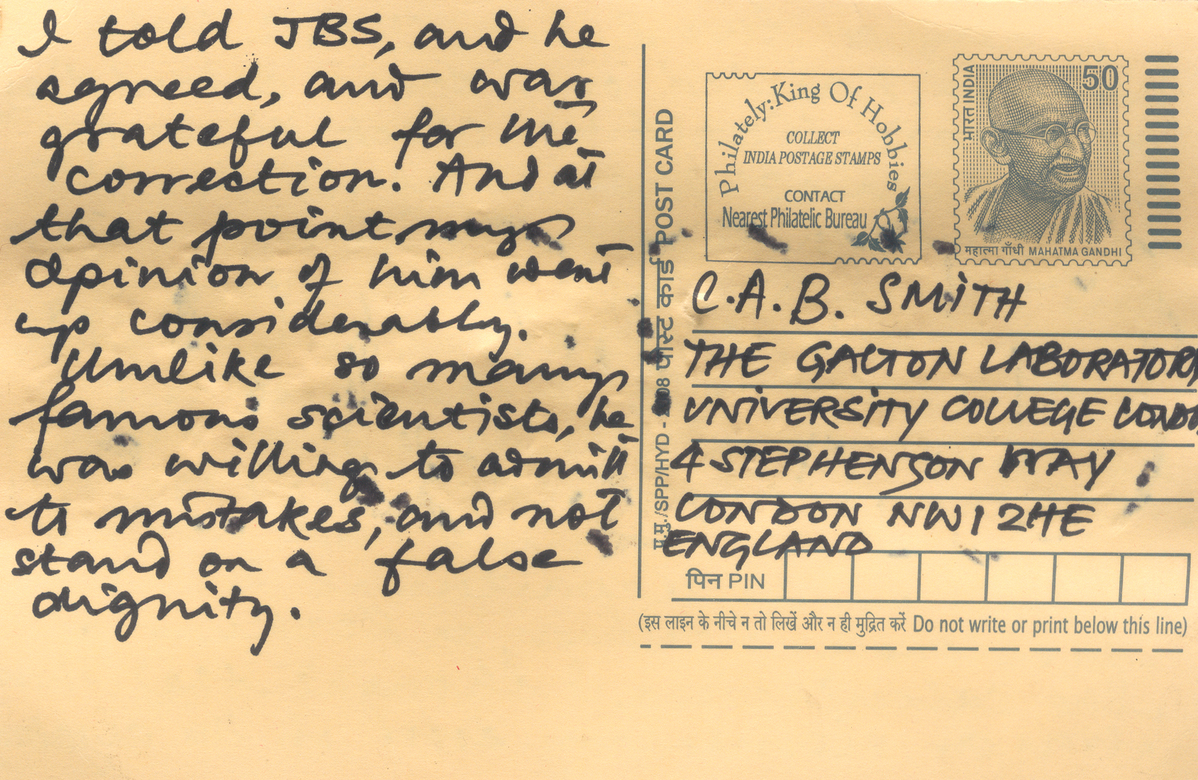 I told JBS, and he
agreed, and was
grateful for the
correction. And at
that point my
opinion of him went
up considerably.
Unlike so many
famous scientists, he
was willing to admit
to mistakes, and not
stand on a false
dignity.
Philately: King Of Hobbies
COLLECT
INDIA POSTAGE STAMPS
CONTACT
Nearest Philatelic Bureau
भारत INDIA
50
महात्मा गाँधी MAHATMA GANDHI
पोस्ट कार्ड POST CARD
प.मु./SPP/HYD -
C.A.B. SMITH
THE GALTON LABORATORY
UNIVERSITY COLLEGE LONDO
4 STEPHENSON WAY
LONDON NW1 2HE
ENGLAND
पिन PIN
(इस लाइन के नीचे न तो लिखें और न ही मुद्रित करें Do not write or print below this line)